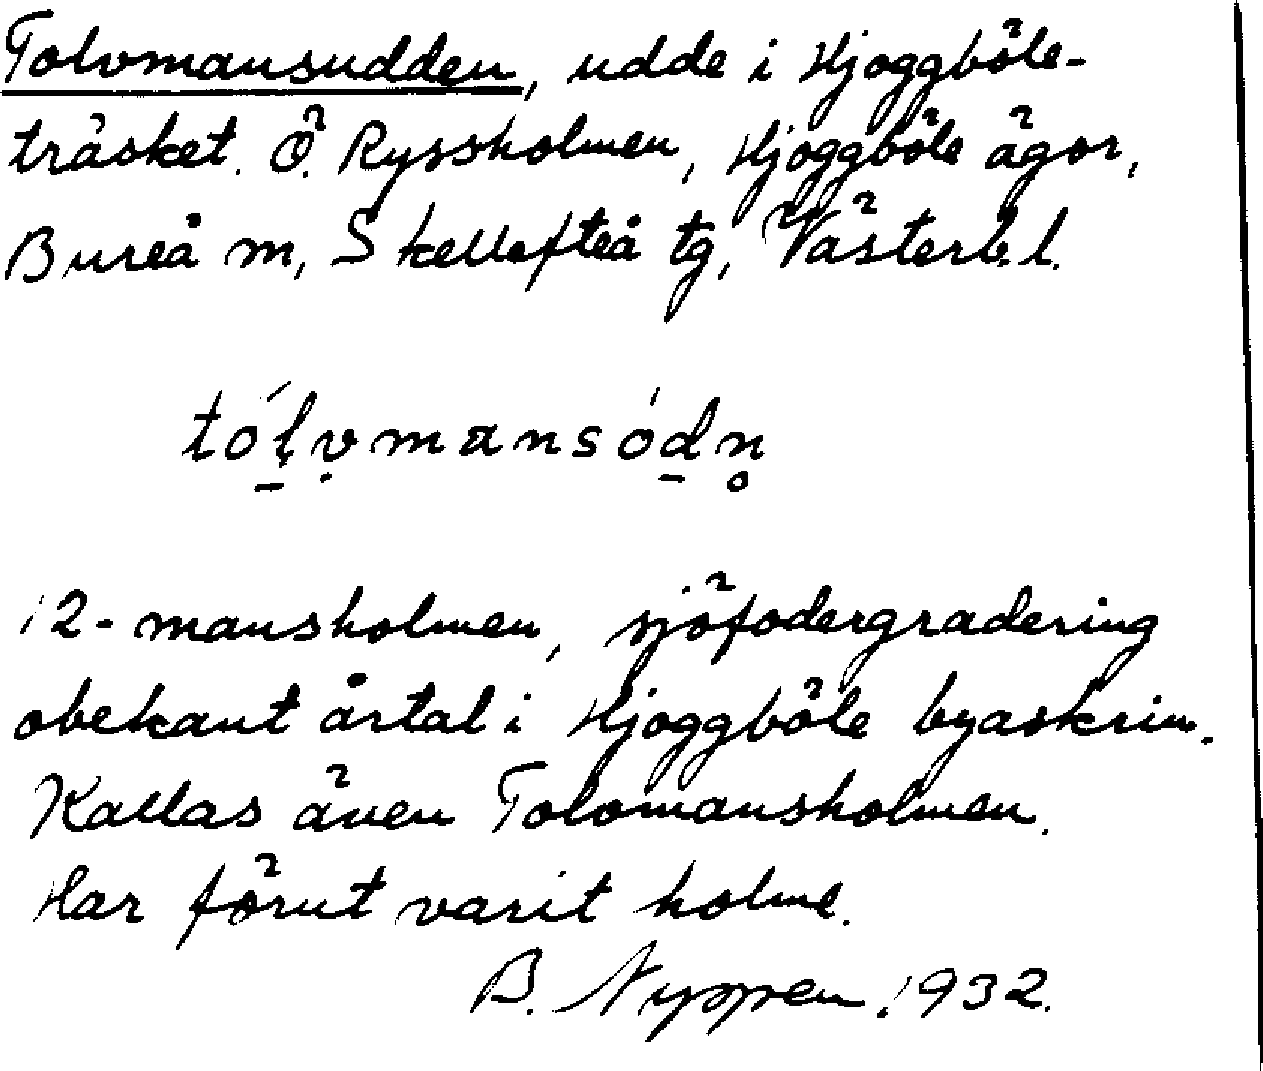 Tolvmansudden, udde i Hjoggböle-
träsket. Ö. Ryssholmen, Hjoggböle ägor,
Bureå m, Skellefteå tg, Västerb. l.
tó̱ḷṿmansód̲n̥
12-mansholmen, sjöfodergradering
obekant årtal i Hjoggböle byaskrin.
Kallas även Tolvmansholmen.
Har förut varit holme.
B. Nyppen. 1932.